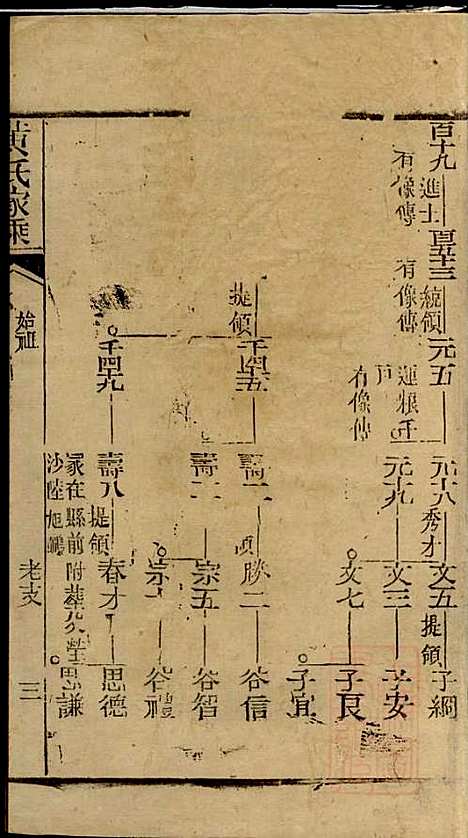 百十九 進士 有像傳 百五十三 統領 有像傳 元五 運粮 有像傳 元十八 秀才 文五 提領 子綱
元十九 文三 子安
文七 子良
子宜
提領 千四五 壽一 勝二 谷信
壽二 宗五 谷智
宗 谷禮
千四九 壽八 提領 春才 思德
冢在縣前沙陸旭 附葬父塋 思謙
黃氏家乘 始祖 老支 三